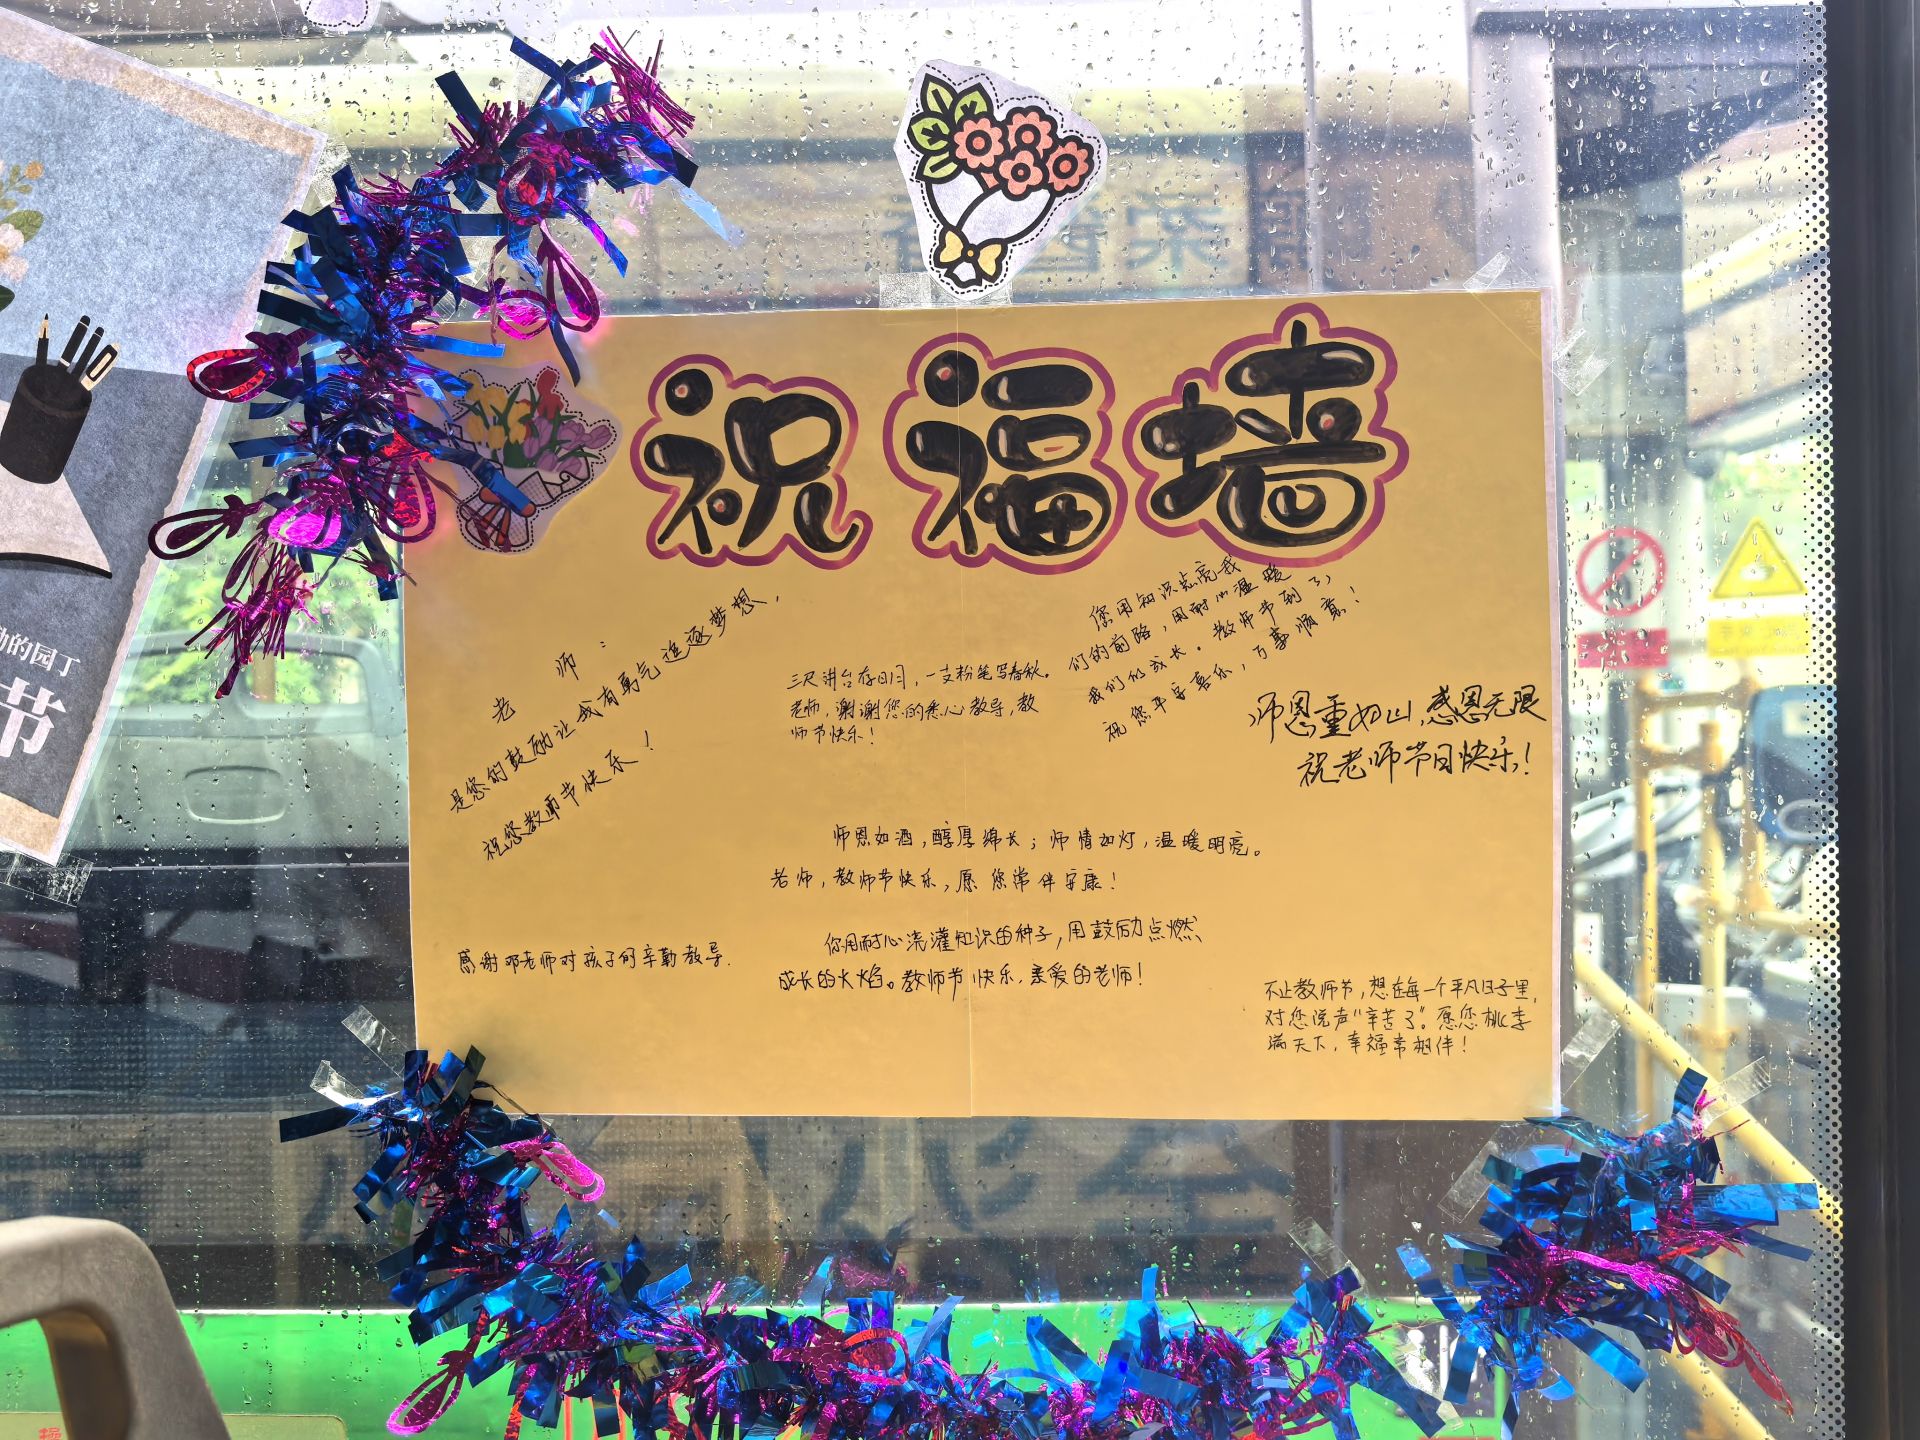 祝福墙
老师：
是您的鼓励让我有勇气追逐梦想，
祝您教师节快乐！
三尺讲台存日月，一支粉笔写春秋。
老师，谢谢您的悉心教导，教
师节快乐！
您用知识点亮我
们的前路，用耐心温暖
我们的成长。教师节到了，
祝您平安喜乐，万事顺意！
师恩重如山，感恩无限
祝老师节日快乐！
师恩如酒，醇厚绵长；师情如灯，温暖明亮。
老师，教师节快乐，愿您常伴安康！
感谢邓老师对孩子的辛勤教导.
你用耐心浇灌知识的种子，用鼓励点燃
成长的火焰。教师节快乐，亲爱的老师！
不止教师节，想在每一个平凡日子里，
对您说声“辛苦了”。愿您桃李
满天下，幸福常相伴！
的园丁
节